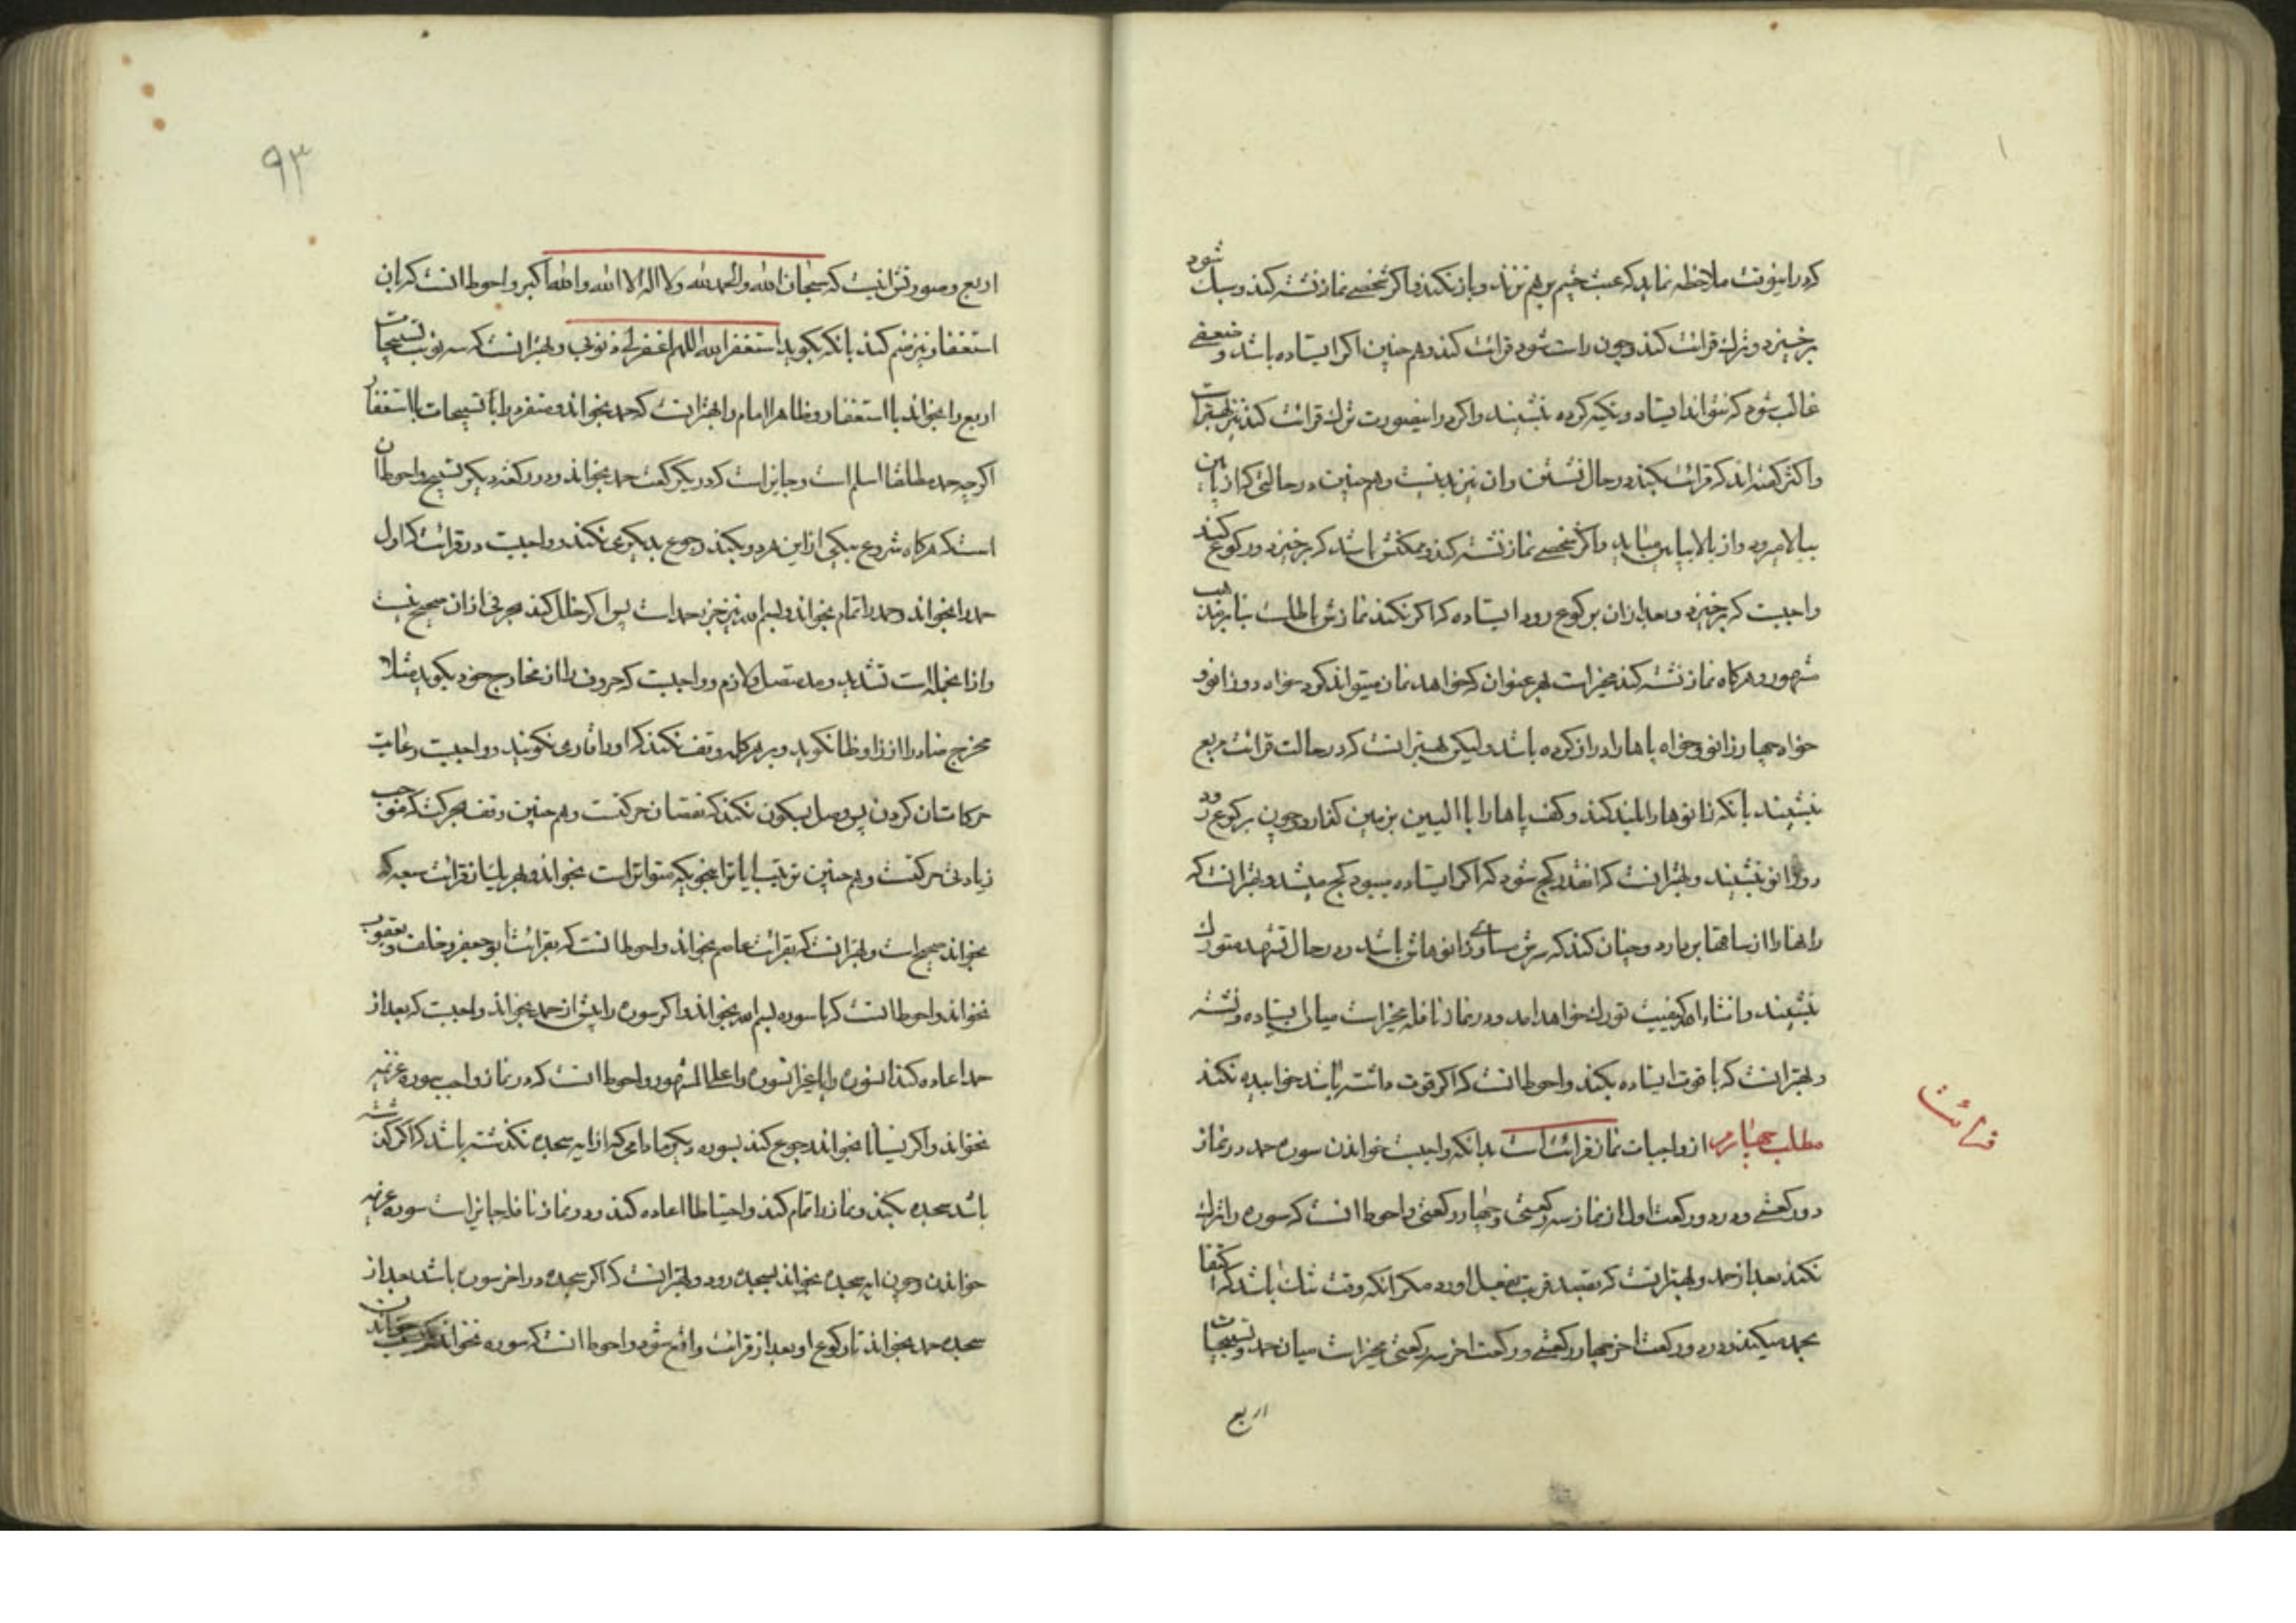 که در اینوقت ملاحظه نماید که عبث چشم برهم نزند و باز نکند و اگر شخصی نماز نشسته کند و سبک شود
برخیزد و ترک قرائت کند و چون راست شود قرائت کند و هم چنین اگر ایستاده باشد و ضعفی
غالب شود که نتواند ایستاد و تکیه کرده بنشیند و اگر در اینصورت ترک قرائت کند نیز بهتر است
و اکثر گفته‌اند که قرائت بکند در حال نشستن و ان نیز بد نیست و هم چنین در حالتی که از پایین
ببالا میرود و از بالا بپایین میاید و اگر شخصی نماز نشسته کند و ممکنش باشد که برخیزد و رکوع کند
واجبست که برخیزد و بعد از ان برکوع رود ایستاده که اگر نکند نمازش باطلست بنا بر مذهب
مشهور و هرگاه نماز نشسته کند مخیر است بهر عنوان که خواهد نماز میتواند کرد خواه دو زانو و
خواه چهار زانو و خواه پاها را دراز کرده باشد و لیکن بهتر انست که در حالت قرائت مربع
بنشیند بانکه زانوها را بلند کند و کف پاها را با الیین بزمین گذارد و چون برکوع رود
دو زانو بنشیند و بهتر انست که انقدر کج شود که اگر ایستاده میبود کج میشد و بهتر انست که
رانها را از ساقها بر دارد و چنان کند که سرش مساوی زانوهاش باشد و در حال تشهد متورک
بنشیند و انشاء الله کیفیت تورک خواهد امد و در نماز نافله مخیر است میان ایستاده و نشسته
و بهتر انست که با قوت ایستاده بکند و احوط انست که اگر قوت داشته باشد خوابیده نکند
مطلب چهارم از واجبات نماز قرائت است بدانکه واجبست خواندن سوره حمد در نماز
قرائت
دو رکعتی و در دو رکعت اول از نماز سه رکعتی و چهار رکعتی و احوط انست که سوره را ترک
نکند بعد از حمد و بهتر انست که بقصد قربت بفعل اورد مگر انکه وقت تنگ باشد که اکتفا
بحمد میکند و در دو رکعت اخر چهار رکعتی و رکعت اخر سه رکعتی مخیر است میان حمد و تسبیحات
اربع
۹۳
اربع و صورتش اینست که سبحان الله والحمد لله ولا اله الا الله والله اکبر و احوط انست که بان
استغفار نیز ضم کند بانکه بگوید استغفر الله اللهم اغفر لی ذنوبی و بهتر انست که سه نوبت تسبیحات
اربع را بخواند با استغفار و ظاهرا امام را بهتر انست که حمد بخواند و منفرد را با تسبیحات با استغفار
اگرچه حمد مطلقا اسلم است و جایز است که در یک رکعت حمد بخواند و در رکعت دیگر تسبیح و احوط ان
است که هرگاه شروع بیکی از این هر دو بکند رجوع بدیگری نکند و واجبست در قرائت که اول
حمد را بخواند و حمد را تمام بخواند و بسم الله نیز جزو حمد است پس اگر خلل کند بحرفی از ان صحیح نیست
و از انجمله است تشدید و مد متصل و لازم و واجبست که حروف را از مخارج خود بگوید مثلا
مخرج ضاد را از زا و ظا نگوید و بر هر کلمه وقف نکند که او را قاری نگویند و واجبست رعایت
حرکاتشان کردن پس وصل بسکون نکند که نقصان حرکتست و هم چنین وقف بحرکت که موجب
زیادتی حرکتست و هم چنین ترتیب ایاترا بنحویکه متواتر است بخواند و بهر یک از قرائت سبعه که
بخواند صحیح است و بهتر انست که بقرائت عاصم بخواند و احوط انست که بقرائت ابو جعفر و خلف و یعقوب
نخواند و احوط انست که با سوره بسم الله بخواند و اگر سوره را پیش از حمد بخواند واجبست که بعد از
حمد اعاده کند انسوره را یا غیر انسوره را علی المشهور و احوط انست که در نماز واجب سوره عزیمه
نخواند و اگر نسیانا بخواند رجوع کند بسوره دیگر مادامی که از ایه سجده نگذشته باشد که اگر گذشته
باشد سجده بکند و نماز را تمام کند و احتیاطا اعاده کند و در نماز نافله جایز است سوره عزیمه
خواندن و چون ایه سجده بخواند بسجده رود و بهتر انست که اگر سجده در اخر سوره باشد بعد از
سجده حمد بخواند تا رکوع او بعد از قرائت واقع شود و احوط انست که سوره نخواند